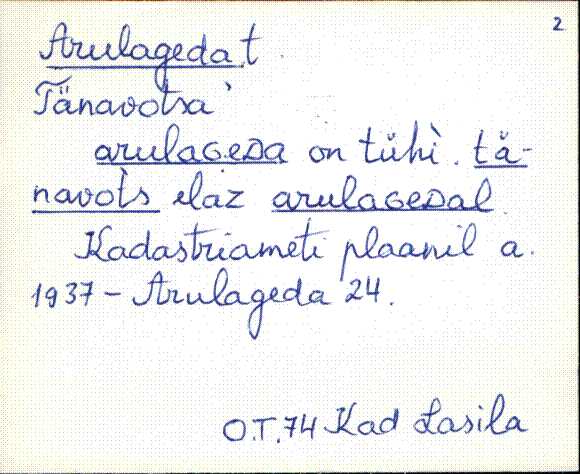 2
Arulagedat
Tänavotsa`
arulaGeDa on tühì. tä-
navots elaz arulaGeDal
Kadastriameti plaanil a.
1937 – Arulageda 24.
O.T. 74 Kad Lasila